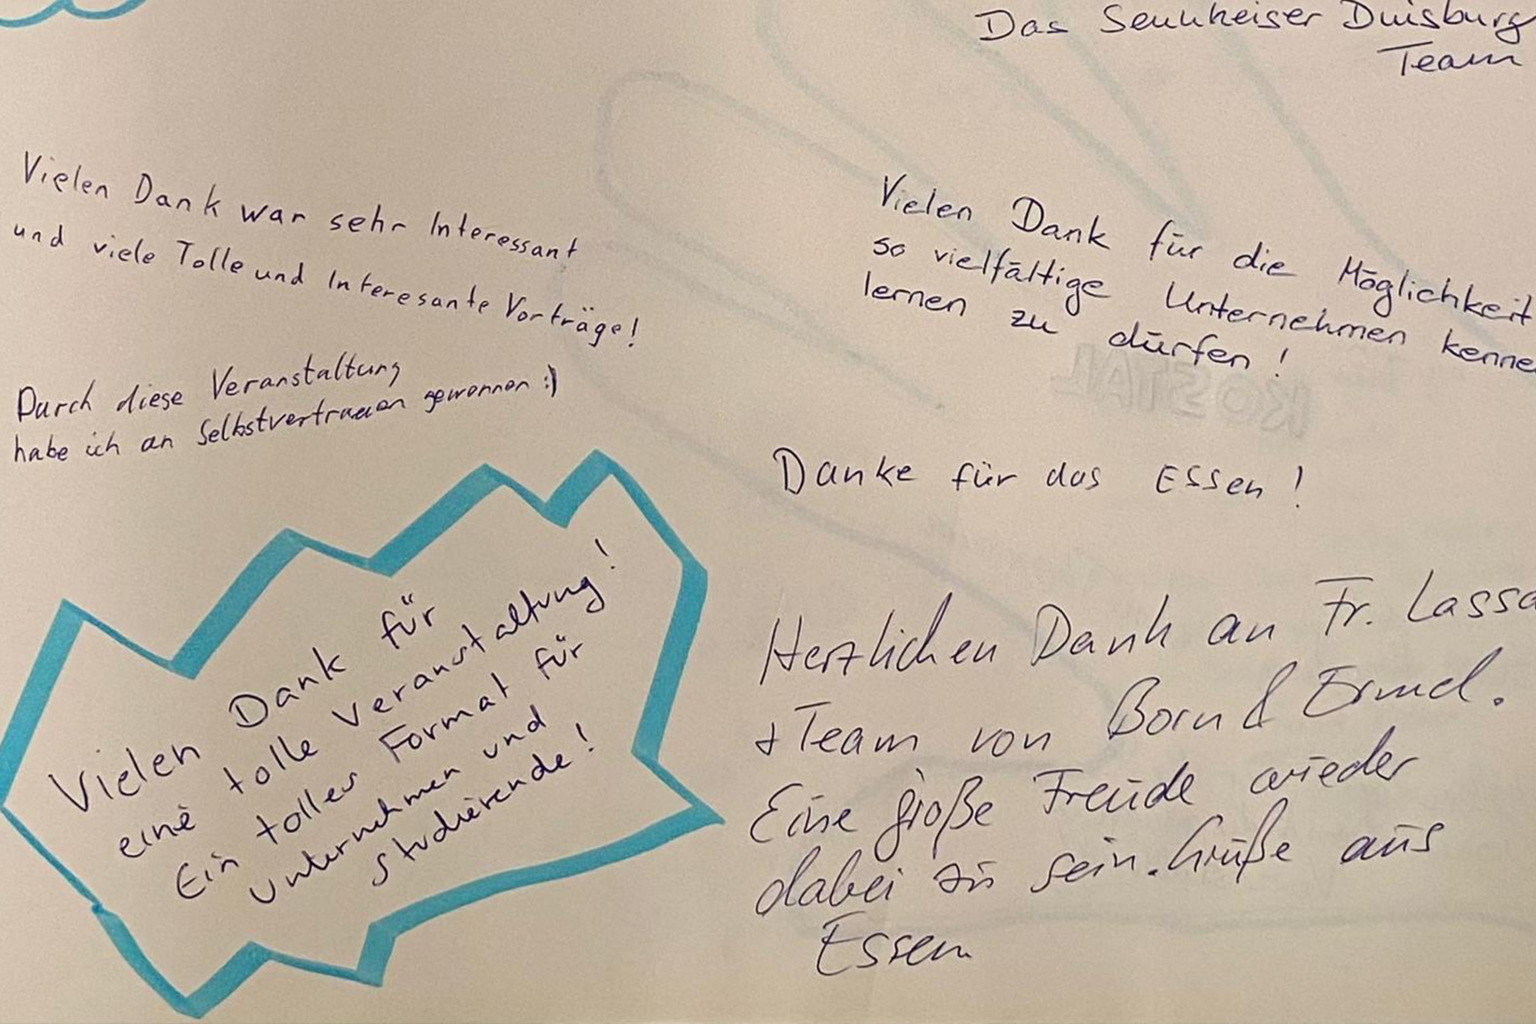 Das Sennheiser Duisburg
Team
Vielen Dank war sehr Interessant
und viele Tolle und Interesante Vorträge!
Durch diese Veranstaltung
habe ich an Selbstvertrauen gewonnen :)
Vielen Dank für die Möglichkeit
so vielfältige Unternehmen kenne
lernen zu dürfen!
Danke für das Essen!
Vielen Dank für
eine tolle Veranstaltung!
Ein tolles Format für
Unternehmen und
Studierende!
Herzlichen Dank an Fr. Lassa
+ Team von Born & Ermel.
Eine große Freude wieder
dabei zu sein. Grüße aus
Essen
KOSTAL